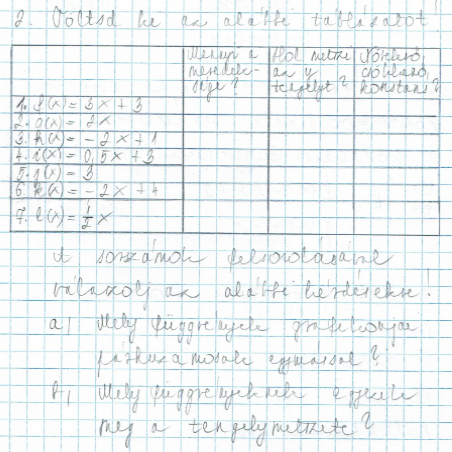 2. Töltsd ki az alábbi táblázatot
Mennyi a meredek- sége? Hol metszi az y tengelyt? Növekvő, csökkenő, konstans?
1. f(x) = 3x + 3
2. g(x) = 2x
3. h(x) = - 2x + 1
4. i(x) = 0,5x + 3
5. j(x) = 3
6. k(x) = - 2x + 4
7. l(x) = 1/2 x
A sorszámok felsorolásával
válaszolj az alábbi kérdésekre!
a, Mely függvények grafikonjai
párhuzamosak egymással?
b, Mely függvényeknek egyezik
meg a tengelymetszete?